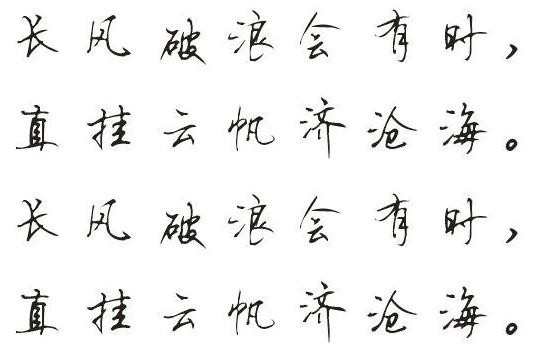 长风破浪会有时，
直挂云帆济沧海。
长风破浪会有时，
直挂云帆济沧海。